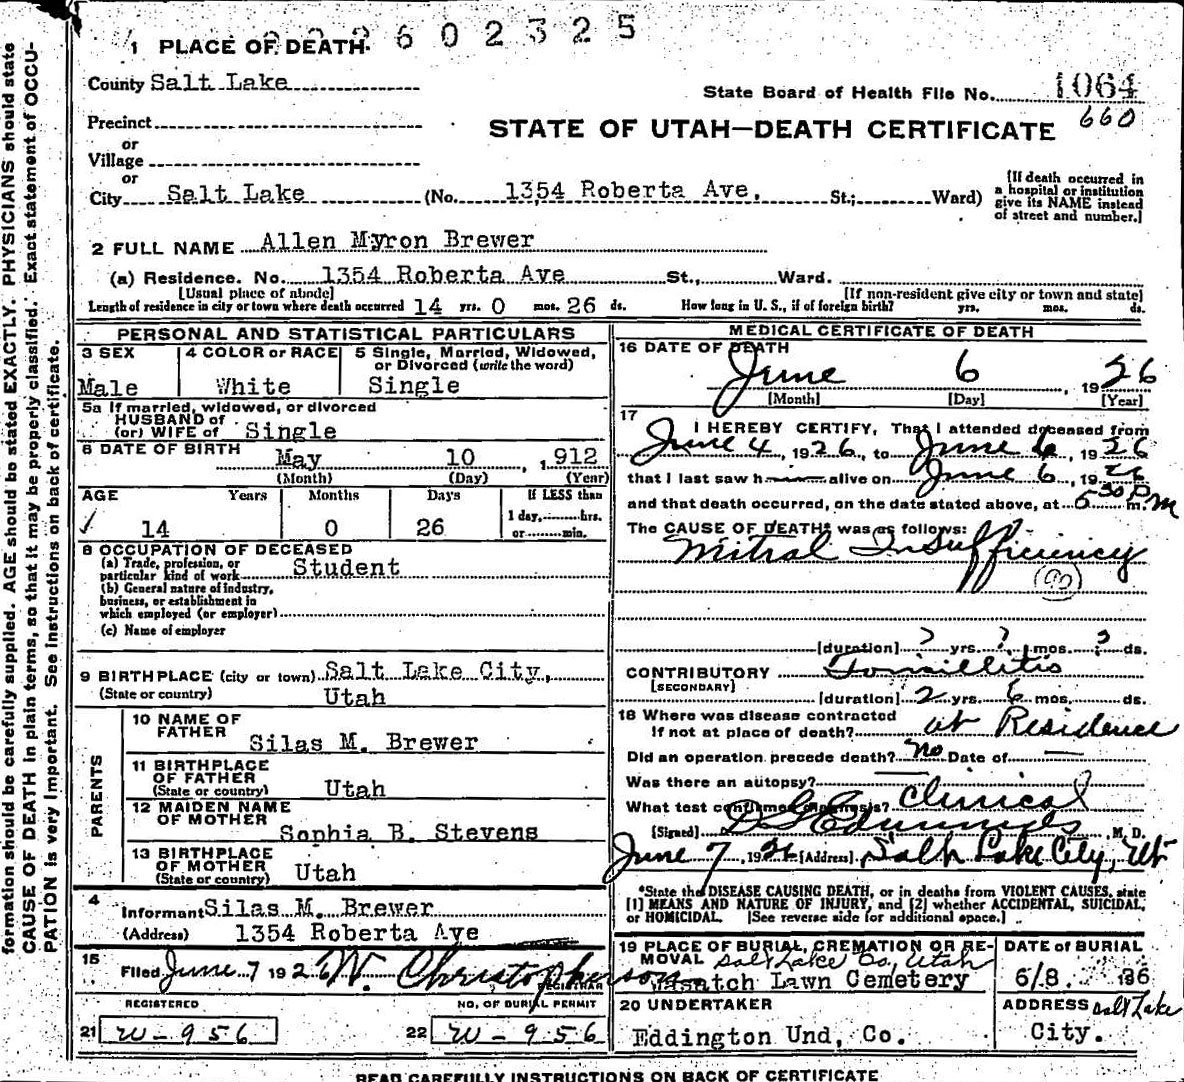 2602325
1 PLACE OF DEATH
County Salt Lake
State Board of Health File No. 1064
660
Precinct
or
STATE OF UTAH—DEATH CERTIFICATE
Village
or
City Salt Lake (No. 1354 Roberta Ave. St.; Ward)
[If death occurred in
a hospital or institution
give its NAME instead
of street and number.]
2 FULL NAME Allen Myron Brewer
(a) Residence. No. 1354 Roberta Ave St., Ward.
[Usual place of abode] [If non-resident give city or town and state]
Length of residence in city or town where death occurred 14 yrs. 0 mos. 26 ds. How long in U. S., if of foreign birth? yrs. mos. ds.
PERSONAL AND STATISTICAL PARTICULARS
3 SEX 4 COLOR or RACE 5 Single, Married, Widowed,
or Divorced (write the word)
Male White Single
5a If married, widowed, or divorced
HUSBAND of
(or) WIFE of Single
6 DATE OF BIRTH May 10, 1912
(Month) (Day) (Year)
AGE Years Months Days If LESS than
1 day, hrs.
14 0 26 or min.
8 OCCUPATION OF DECEASED
(a) Trade, profession, or
particular kind of work Student
(b) General nature of industry,
business, or establishment in
which employed (or employer)
(c) Name of employer
9 BIRTHPLACE (city or town) Salt Lake City,
(State or country) Utah
PARENTS
10 NAME OF
FATHER
Silas M. Brewer
11 BIRTHPLACE
OF FATHER
(State or country) Utah
12 MAIDEN NAME
OF MOTHER
Sophia B. Stevens
13 BIRTHPLACE
OF MOTHER
(State or country) Utah
4
Informant Silas M. Brewer
(Address) 1354 Roberta Ave
15
Filed June 7 1926 W. Christopherson
REGISTRAR
REGISTERED NO. OF BURIAL PERMIT
21 W-956 22 W-956
MEDICAL CERTIFICATE OF DEATH
16 DATE OF DEATH
June 6, 1926
[Month] [Day] [Year]
17 I HEREBY CERTIFY, That I attended deceased from
June 4, 1926, to June 6, 1926
that I last saw h alive on June 6, 1926
and that death occurred, on the date stated above, at 5 30 P m.
The CAUSE OF DEATH* was as follows:
Mitral Insufficiency
(90)
[duration] ? yrs. ? mos. ? ds.
CONTRIBUTORY Tonsillitis
[SECONDARY]
[duration] 2 yrs. 6 mos. ds.
18 Where was disease contracted
If not at place of death? at Residence
Did an operation precede death? no Date of
Was there an autopsy?
What test confirmed diagnosis? Clinical
[Signed] M. D.
June 7, 1926 [Address] Salt Lake City, Ut
*State the DISEASE CAUSING DEATH, or in deaths from VIOLENT CAUSES, state
[1] MEANS AND NATURE OF INJURY, and [2] whether ACCIDENTAL, SUICIDAL,
or HOMICIDAL. [See reverse side for additional space.]
19 PLACE OF BURIAL, CREMATION OR RE-
MOVAL Salt Lake Co, Utah
Wasatch Lawn Cemetery
DATE of BURIAL
6/8 196
20 UNDERTAKER
Eddington Und, Co.
ADDRESS Salt Lake
City.
READ CAREFULLY INSTRUCTIONS ON BACK OF CERTIFICATE
formation should be carefully supplied. AGE should be stated EXACTLY. PHYSICIANS should state
CAUSE OF DEATH in plain terms, so that it may be properly classified. Exact statement of OCCU-
PATION is very important. See instructions on back of certificate.